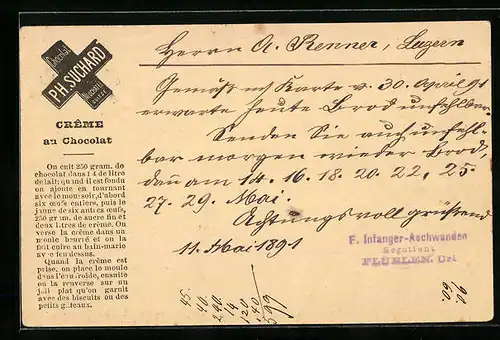 Chocolat
PH. SUCHARD
Neuchatel
SUISSE
CRÊME
au Chocolat
On cuit 250 gram. de
chocolat dans 1 4 de litre
de lait; quand il est fondu
on ajoute en tournant
avec le moussoir, d'abord
six œufs entiers, puis le
jaune de six autres œufs,
250 gram. de sucre fin et
deux litres de crème. On
verse la crème dans un
moule beurré et on la
fait cuire au bain-marie
avec feu dessus.
Quand la crème est
prise, on place le moule
dans l'eau froide, ensuite
on la reverse sur un
joli plat qu'on garnit
avec des biscuits ou des
petits gâteaux.
Herrn A. Renner, Luzern
Gemäss Karte v. 30. April 91
erwarte heute Brod unfehlbar.
Senden Sie auch unfehl-
bar morgen wieder Brod,
dann am 14. 16. 18. 20. 22. 25.
27. 29. Mai.
Achtungsvoll grüssend
11. Mai 1891
F. Infanger-Aschwanden
Negotiant
FLÜELEN, Uri
45.
40.
240.
14
120
140
599
90.
60.